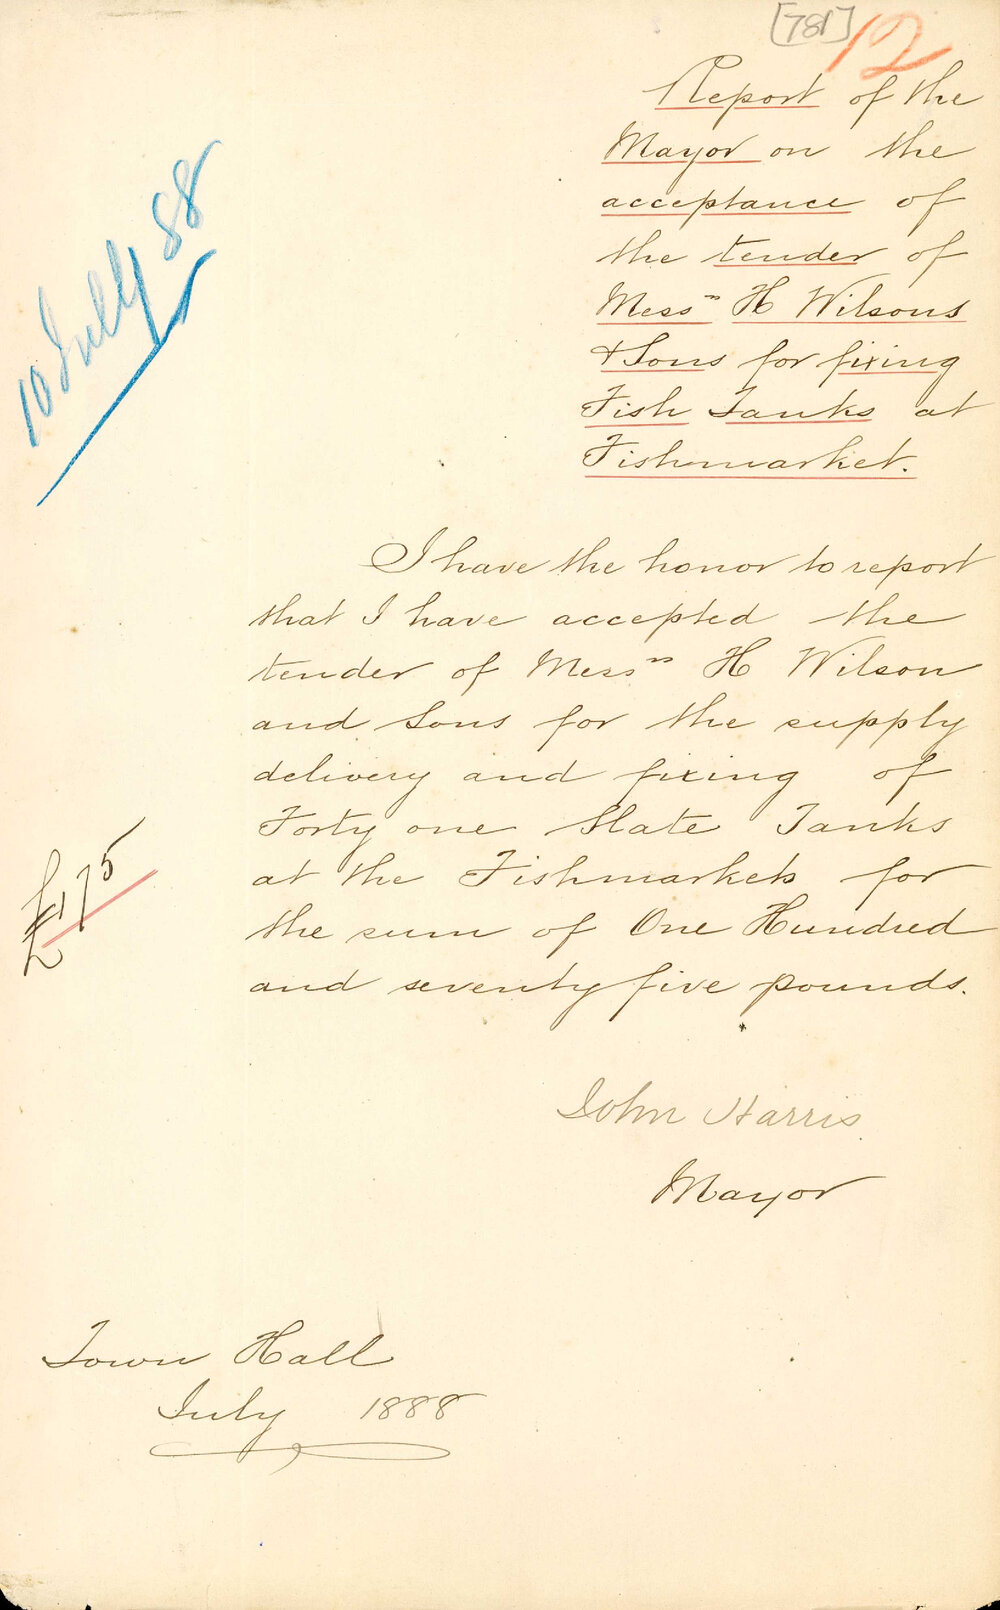 [781] 12
Report of the
Mayor on the
acceptance of
the tender of
Messrs H Wilsons
& Sons for fixing
Fish Tanks at
Fishmarket.
10 July 88
I have the honor to report
that I have accepted the
tender of Messrs H Wilson
and Sons for the supply
delivery and fixing of
Forty one Slate Tanks
at the Fishmarkets for
the sum of One Hundred
and seventy five pounds.
£175
John Harris
Mayor
Town Hall
July 1888